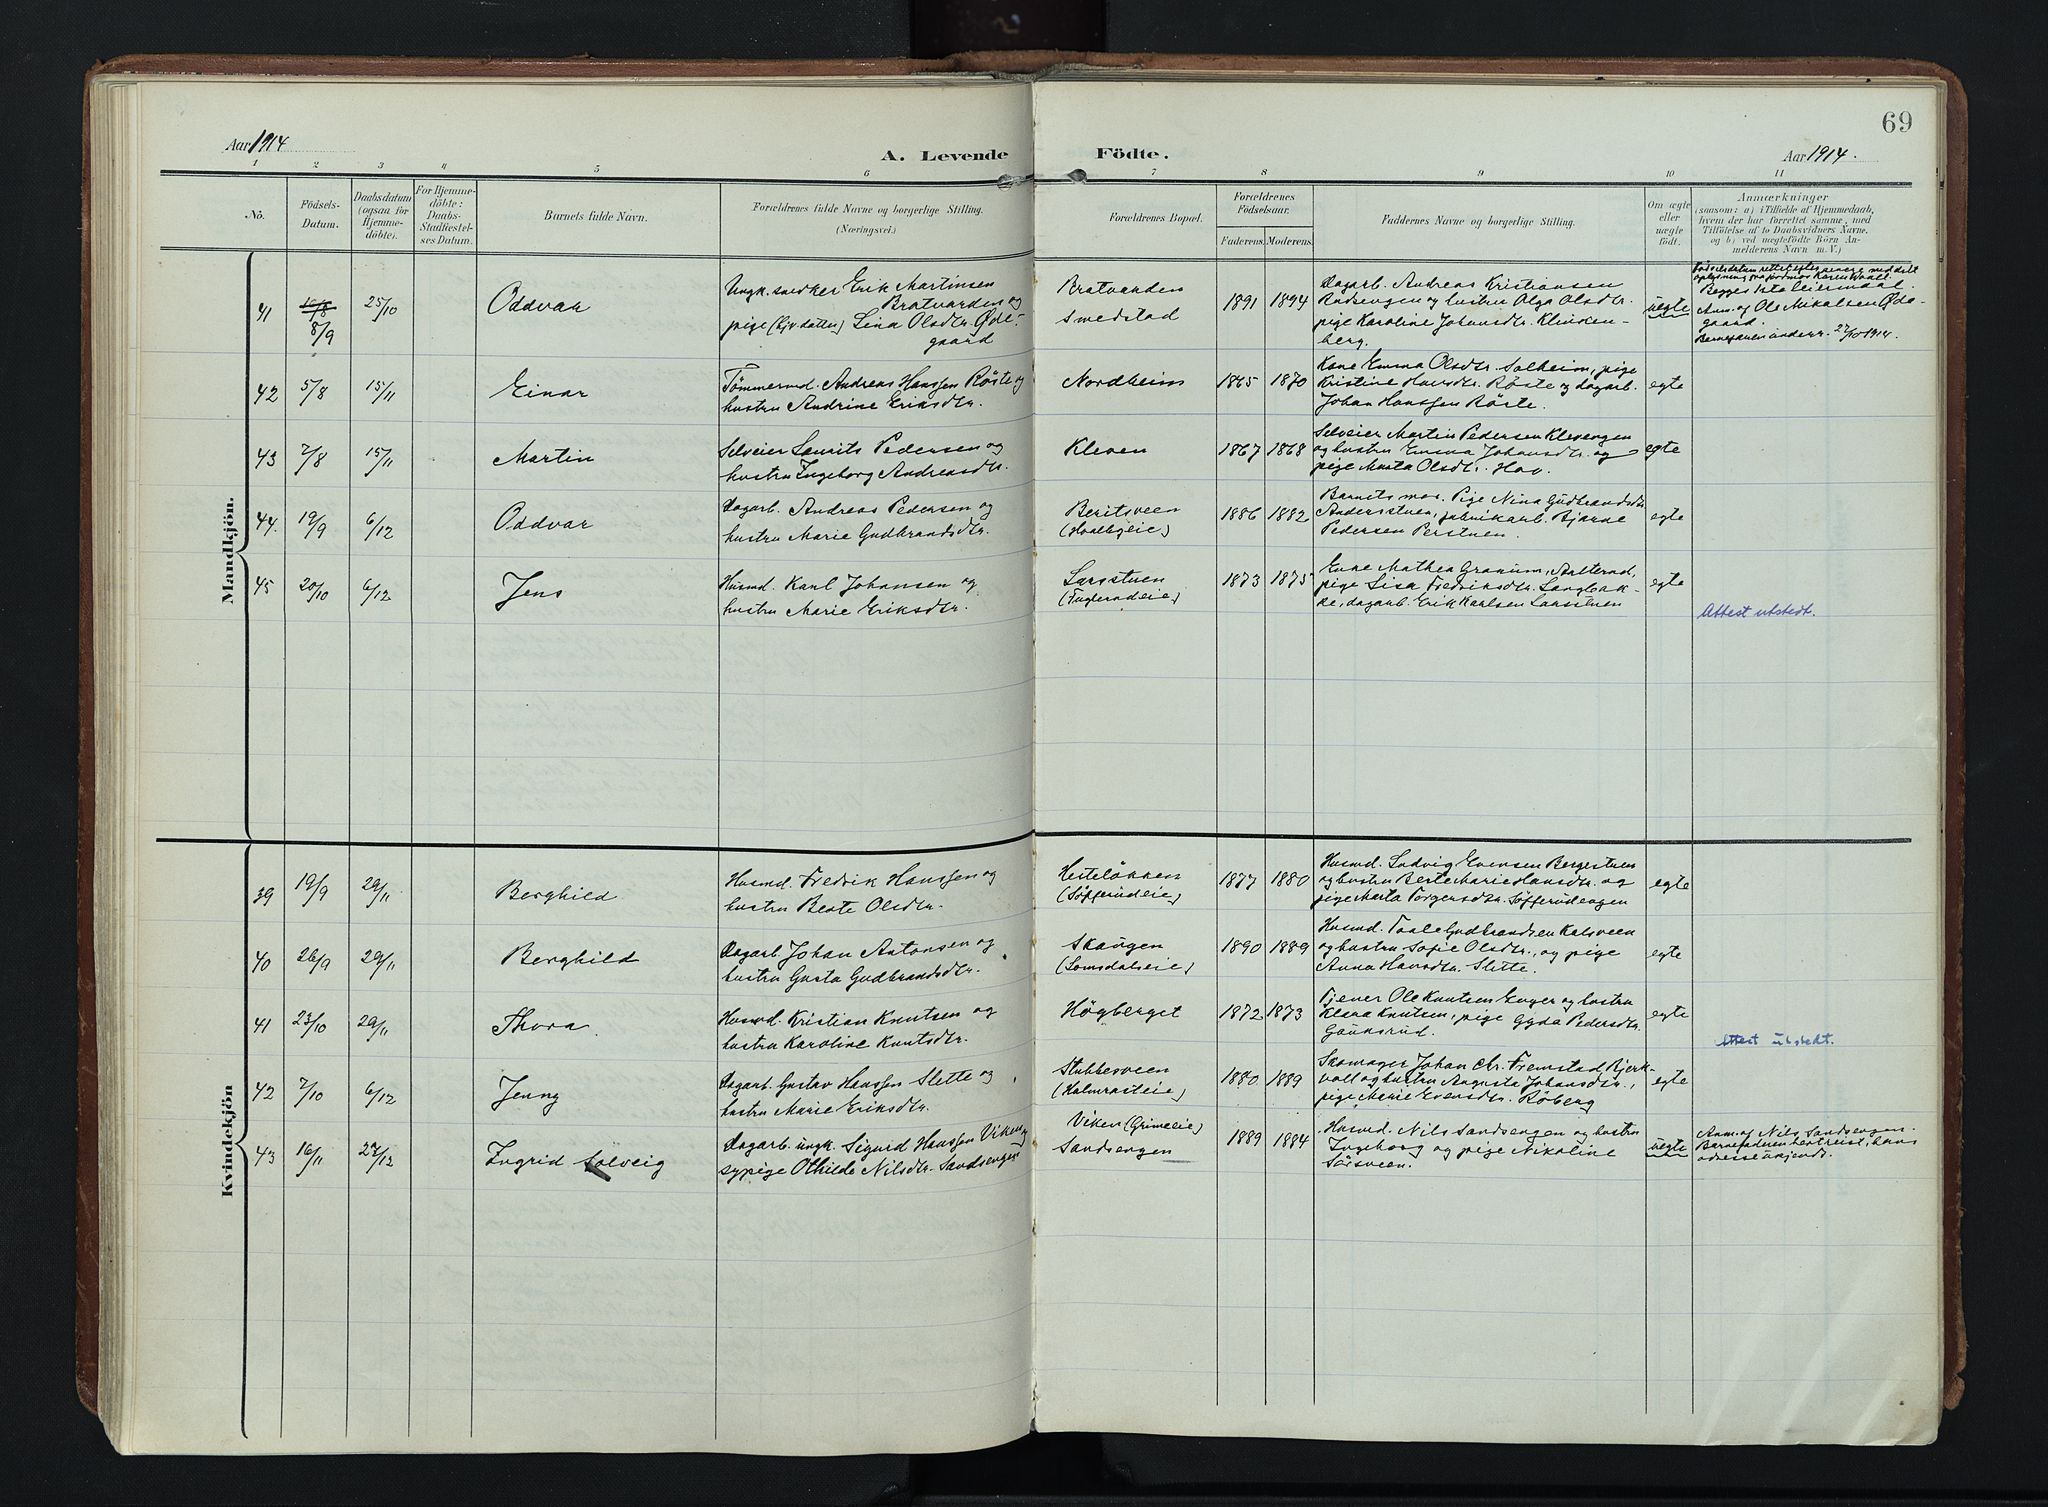 69
Aar 1914
A. Levende Födte.
Aar 1914.
1 2 3 4 5 6 7 8 9 10 11
No.
Födsels-
Datum.
Daabsdatum
(ogsaa for
Hjemme-
döbte).
For Hjemme-
döbte:
Daabs-
Stadfæstel-
ses Datum.
Barnets fulde Navn.
Forældrenes fulde Navne og borgerlige Stilling.
(Næringsvei.)
Forældrenes Bopæl.
Forældrenes
Födselsaar.
Faderens.
Moderens.
Faddernes Navne og borgerlige Stilling.
Om ægte
eller
uægte
födt.
Anmærkninger
(saasom: a) i Tilfælde af Hjemmedaab,
hvem der har forrettet samme, med
Tilföielse af to Daabsvidners Navne.
og b) ved uægtefödte Börn An-
melderens Navn m. V.)
Mandkjön.
41
8/9
25/10
Oddvar
Ungk. snedker Erik Martinsen
Bratvarden og
pige Lina Olsdtr. Øde-
gaard
Bratvarden
Smedstad
1891
1894
Dagarb. Andreas Kristiansen
og hustru Olga Olsdtr.
pige Karoline Johansdtr. Klinken-
berg.
uegte
Begges 1ste leiermaal.
Anm. af Ole Nikolsen Øde-
gaard.
Barnefaderen underr. 27/10 1914.
42
5/8
15/11
Einar
Tömmermd. Andreas Hanssen Röste og
hustru Andrine Eriksdtr.
Nordheim
1865
1870
Kone Emma Olsdtr. Solheim, pige
Kristine Hansdtr. Röste og dagarb.
Johan Hanssen Röste.
egte
43
7/8
15/11
Martin
Selveier Laurits Pedersen og
hustru Ingeborg Andreasdtr.
Kleven
1867
1868
Selveier Martin Pedersen Klevengen
og hustru Emma Johansdtr. og
pige Marta Olsdtr. Hov.
egte
44.
19/9
6/12
Oddvar
Dagarb. Andreas Pedersen og
hustru Marie Gudbrandsdtr.
Beritsveen
1886
1882
Barnets mor. Pige Nina Gudbrandsdtr.
Andersstuen, fabrikarb. Bjarne
Pedersen Perstuen.
egte
45
20/10
6/12
Jens
Husmd. Karl Johansen og
hustru Marie Eriksdtr.
Larsstuen
(Fuglerudeie)
1873
1875
Enke Mathea Granum, Aalterud,
pige Lisa Fredriksdtr. Langbak-
ke, dagarb. Erik Karlsen Larsstuen
egte
Attest utstedt.
Kvindekjön
39
19/9
29/11
Borghild
Husmd. Fredrik Hanssen og
hustru Beate Olsdtr.
Hesteløkken
(Söfferudeie)
1877
1880
Husmd. Ludvig Evensen Bergestuen
og hustru Berte Marie Hansdtr. og
pige Marta Torgersdtr. Söfferudengen
egte
40
26/9
29/11
Borghild
Dagarb. Johan Antonsen og
hustru Gusta Gudbrandsdtr.
Skaugen
(Lomsdalseie)
1890
1889
Husmd. Paale Gudbrandsen Kalsveen
og hustru Sofie Olsdtr., og pige
Anna Hansdtr. Slette.
egte
41
23/10
29/11
Thora.
Husmd. Kristian Knutsen og
hustru Karoline Knutsdtr.
Högberget
1872
1873
Tjener Ole Knutsen Enger og hustru
Klara Knutsen, pige Gyda Pedersdtr.
Gauksrud.
egte
Attest utstedt.
42
7/10
6/12
Jenny
Dagarb. Gustav Hanssen Slette og
hustru Marie Eriksdtr.
Stubbesveen
(Halmrasteie)
1880
1889
Skomager Johan Chr. Fremstad Bjerk-
voll og hustru Augusta Johansdtr.,
pige Marie Evensdtr. Röberg
egte
43
16/11
27/12
Ingrid Solveig
Dagarb. ungk. Sigurd Hanssen Viken og
sypige Othilde Nilsdtr. Sandsengen
Viken (Grimeeie)
Sandsengen
1889
1884
Husmd. Nils Sandsengen og hustru
Ingeborg og pige Nikoline
Sörsveen.
uegte
Anm. af Nils Sandsengen.
Barnefaderen bortreist, hans
adresse ukjendt.